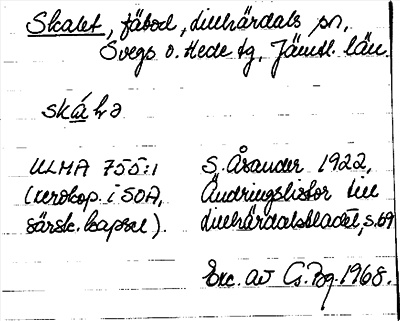 Skalet, fäbod, Lillhärdals sn,
Svegs o. Hede tg, Jämtl. län.
skálə
ULMA 755:1 S. Åsander 1922,
(xerokop. i SOA, Ändringslistor till
särsk. kapsel). Lillhärdalsbladet, s. 69
Exc. av Cs. Bg. 1968.